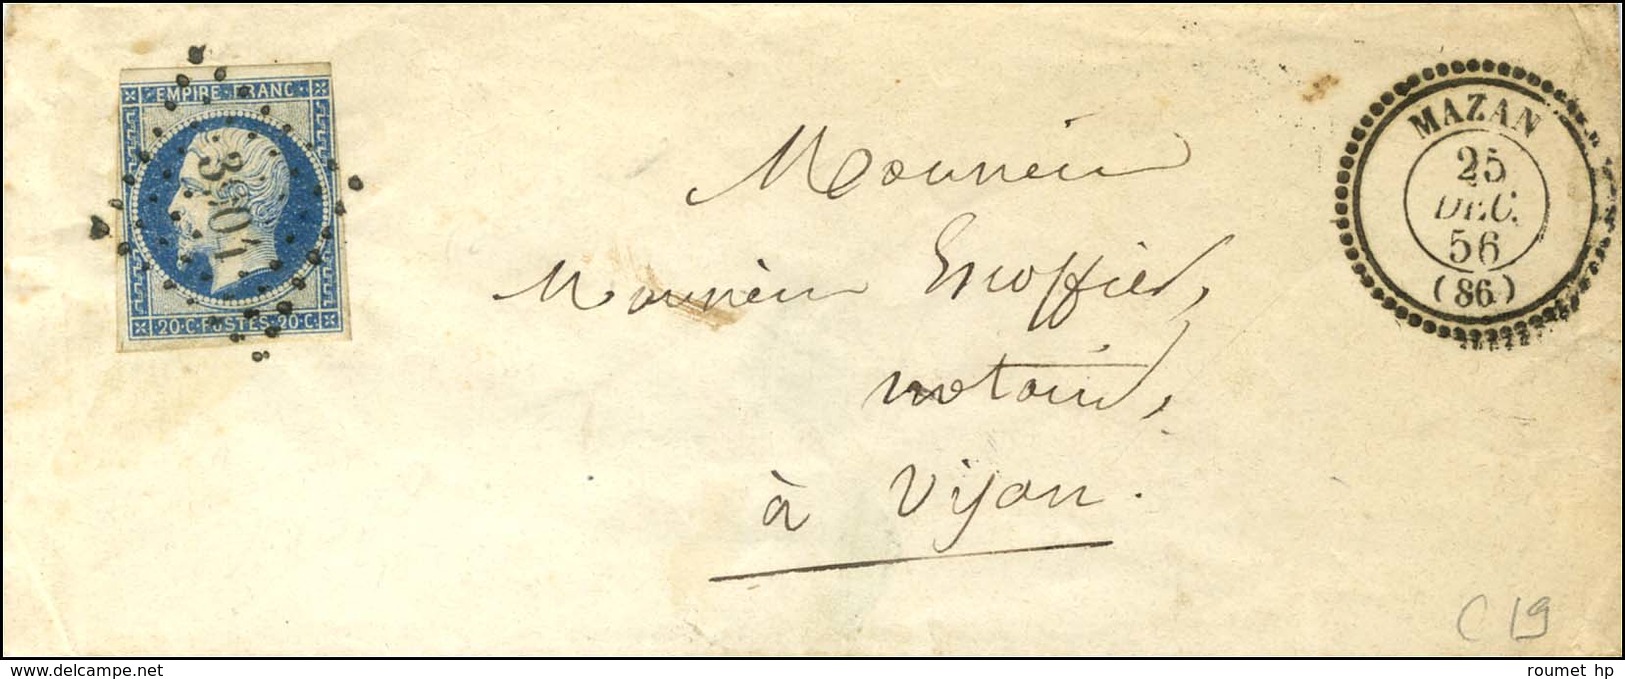 EMPIRE FRANC
3904
20·C·POSTES·20·C·
MAZAN
25
DEC.
56
(86)
Monsieur
Monsieur Escoffier,
notaire,
à Vison.
C 19
www.delcampe.net
roumet hp